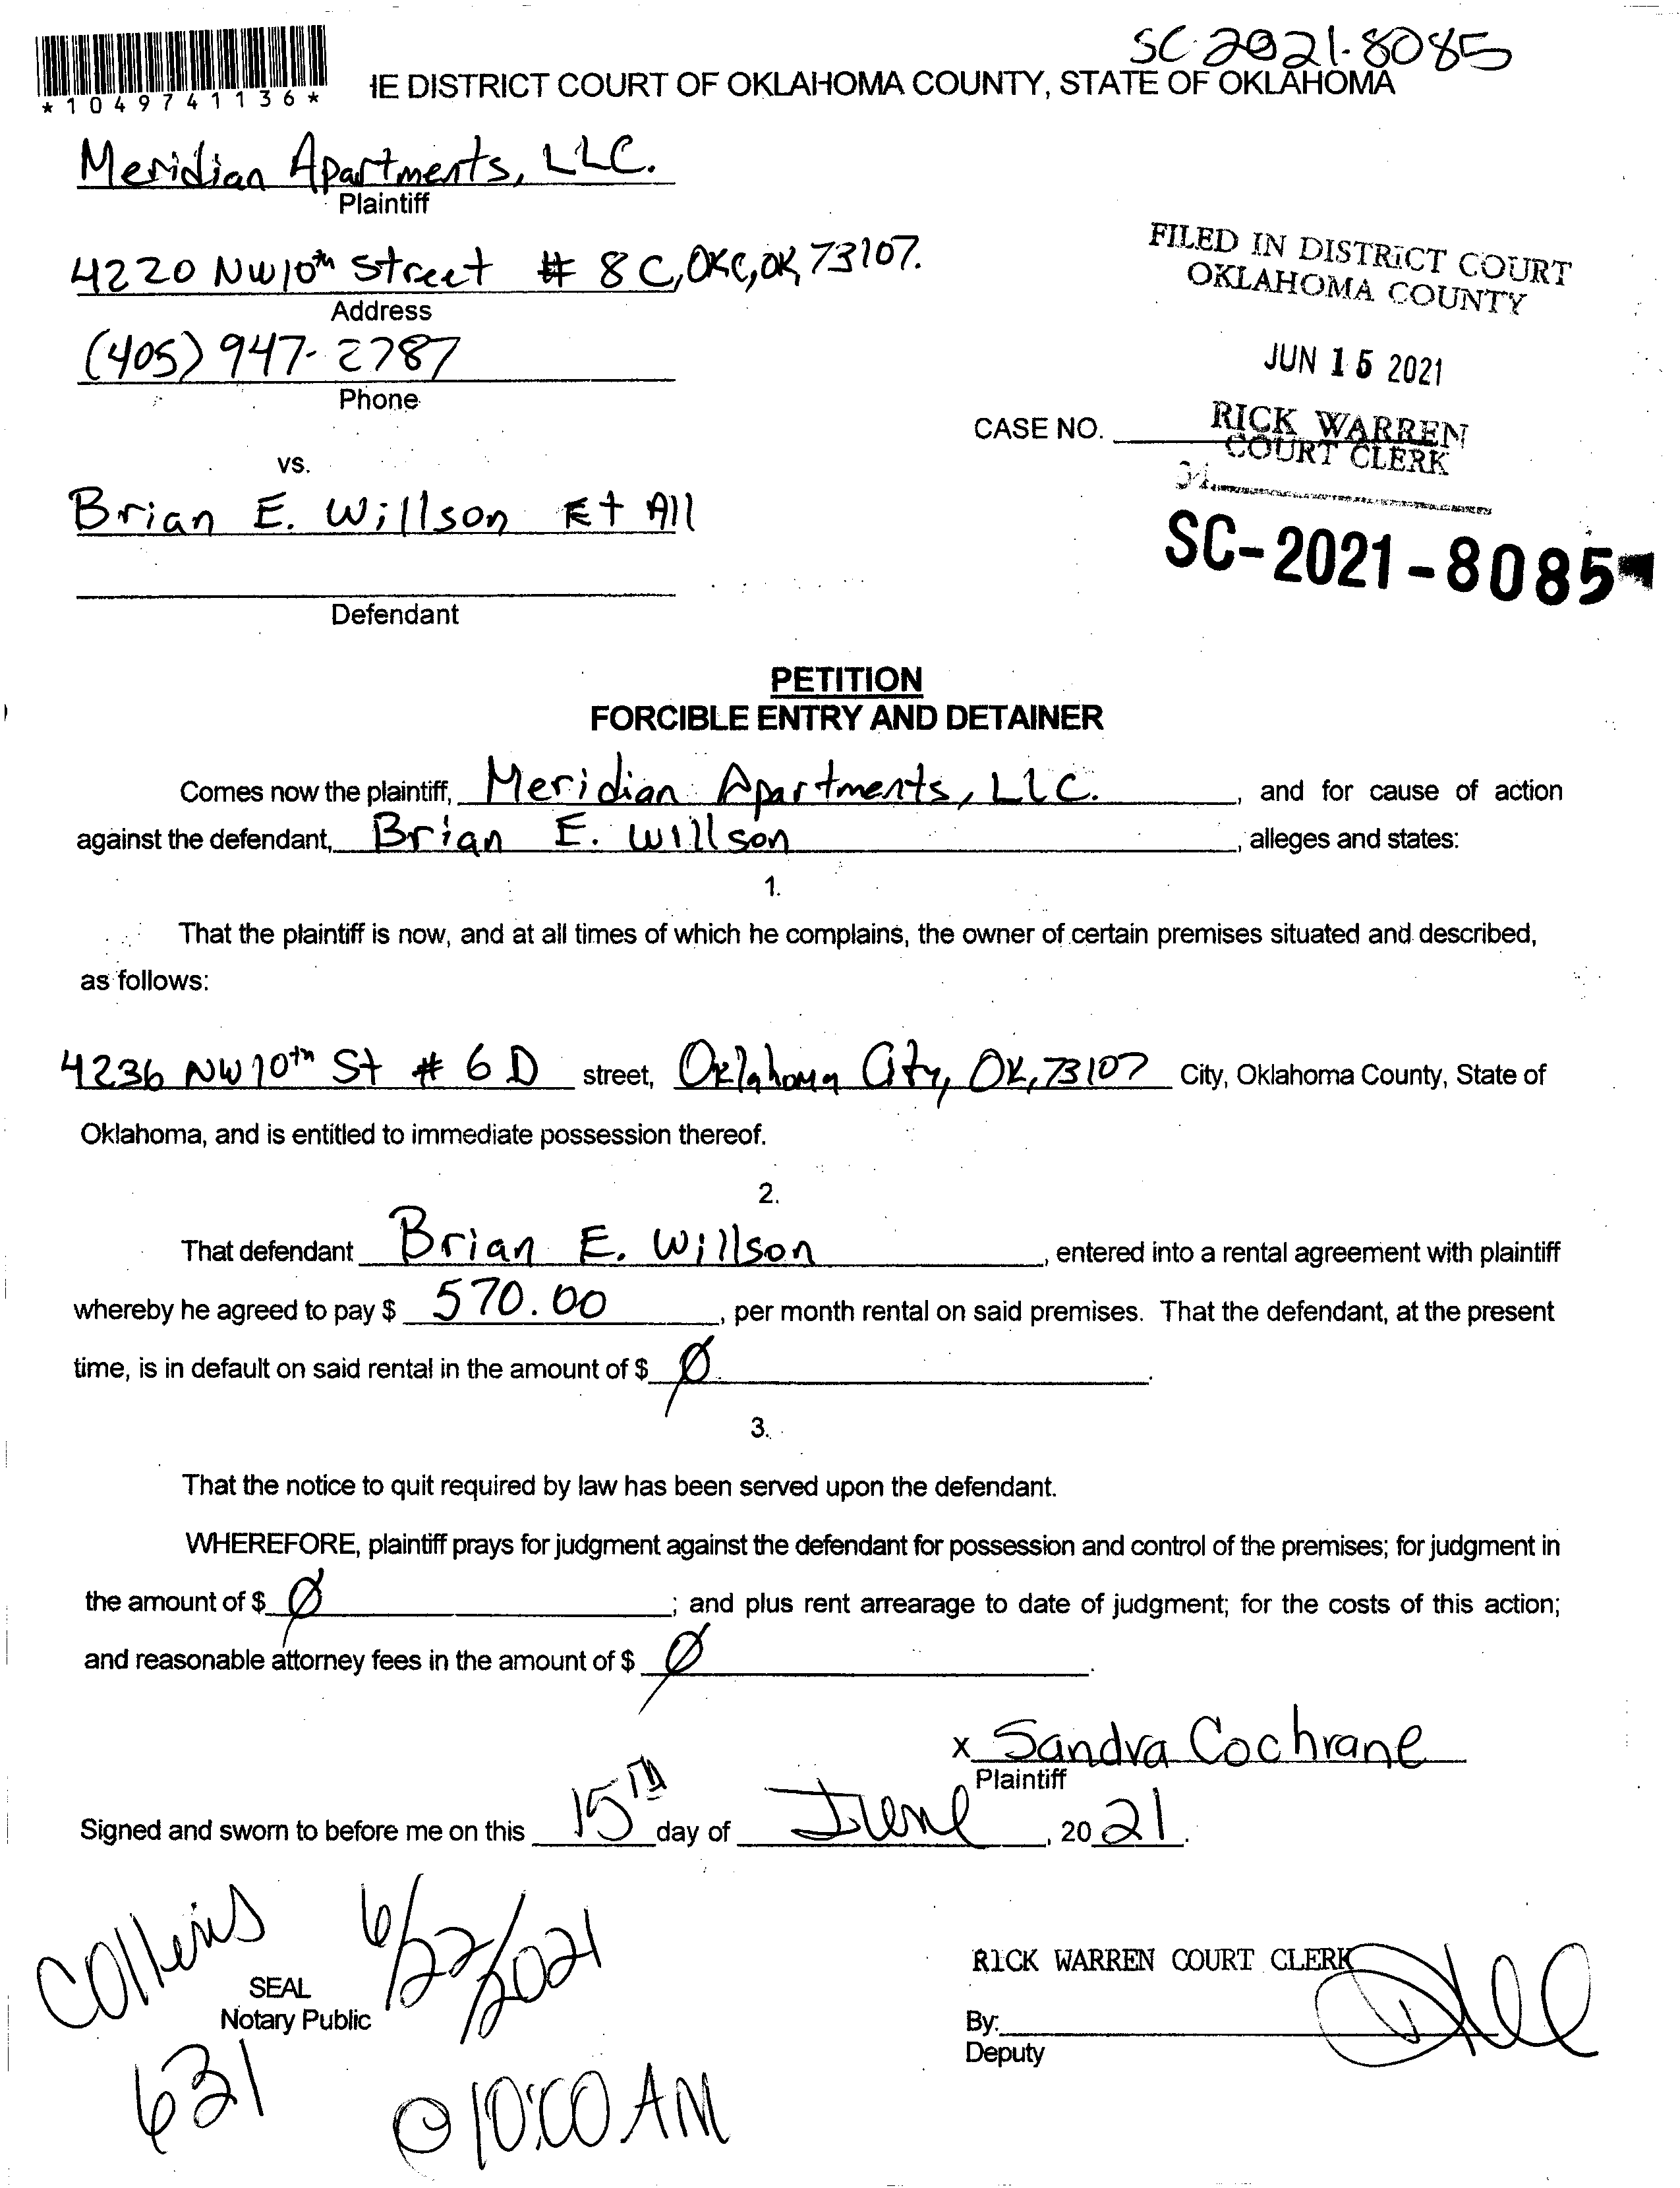 SC-2021-8085
*1049741136*
HE DISTRICT COURT OF OKLAHOMA COUNTY, STATE OF OKLAHOMA
Meridian Apartments, LLC.
Plaintiff
4220 NW 10th Street # 8C, OKC, OK, 73107.
Address
(405) 947-2787
Phone
FILED IN DISTRICT COURT
OKLAHOMA COUNTY
JUN 15 2021
RICK WARREN
COURT CLERK
34
CASE NO.
SC-2021-8085
vs.
Brian E. Willson Et All
Defendant
PETITION
FORCIBLE ENTRY AND DETAINER
Comes now the plaintiff, Meridian Apartments, LLC. , and for cause of action
against the defendant, Brian E. Willson , alleges and states:
1.
That the plaintiff is now, and at all times of which he complains, the owner of certain premises situated and described,
as follows:
4236 NW 10th St # 6D street, Oklahoma City, OK, 73107 City, Oklahoma County, State of
Oklahoma, and is entitled to immediate possession thereof.
2.
That defendant Brian E. Willson , entered into a rental agreement with plaintiff
whereby he agreed to pay $ 570.00 , per month rental on said premises. That the defendant, at the present
time, is in default on said rental in the amount of $ Ø .
3.
That the notice to quit required by law has been served upon the defendant.
WHEREFORE, plaintiff prays for judgment against the defendant for possession and control of the premises; for judgment in
the amount of $ Ø ; and plus rent arrearage to date of judgment; for the costs of this action;
and reasonable attorney fees in the amount of $ Ø .
x Sandra Cochrane
Plaintiff
Signed and sworn to before me on this 15TH day of June , 20 21 .
Collins 6/22/2021
SEAL
Notary Public
631 @ 10:00 AM
RICK WARREN COURT CLERK
By:
Deputy